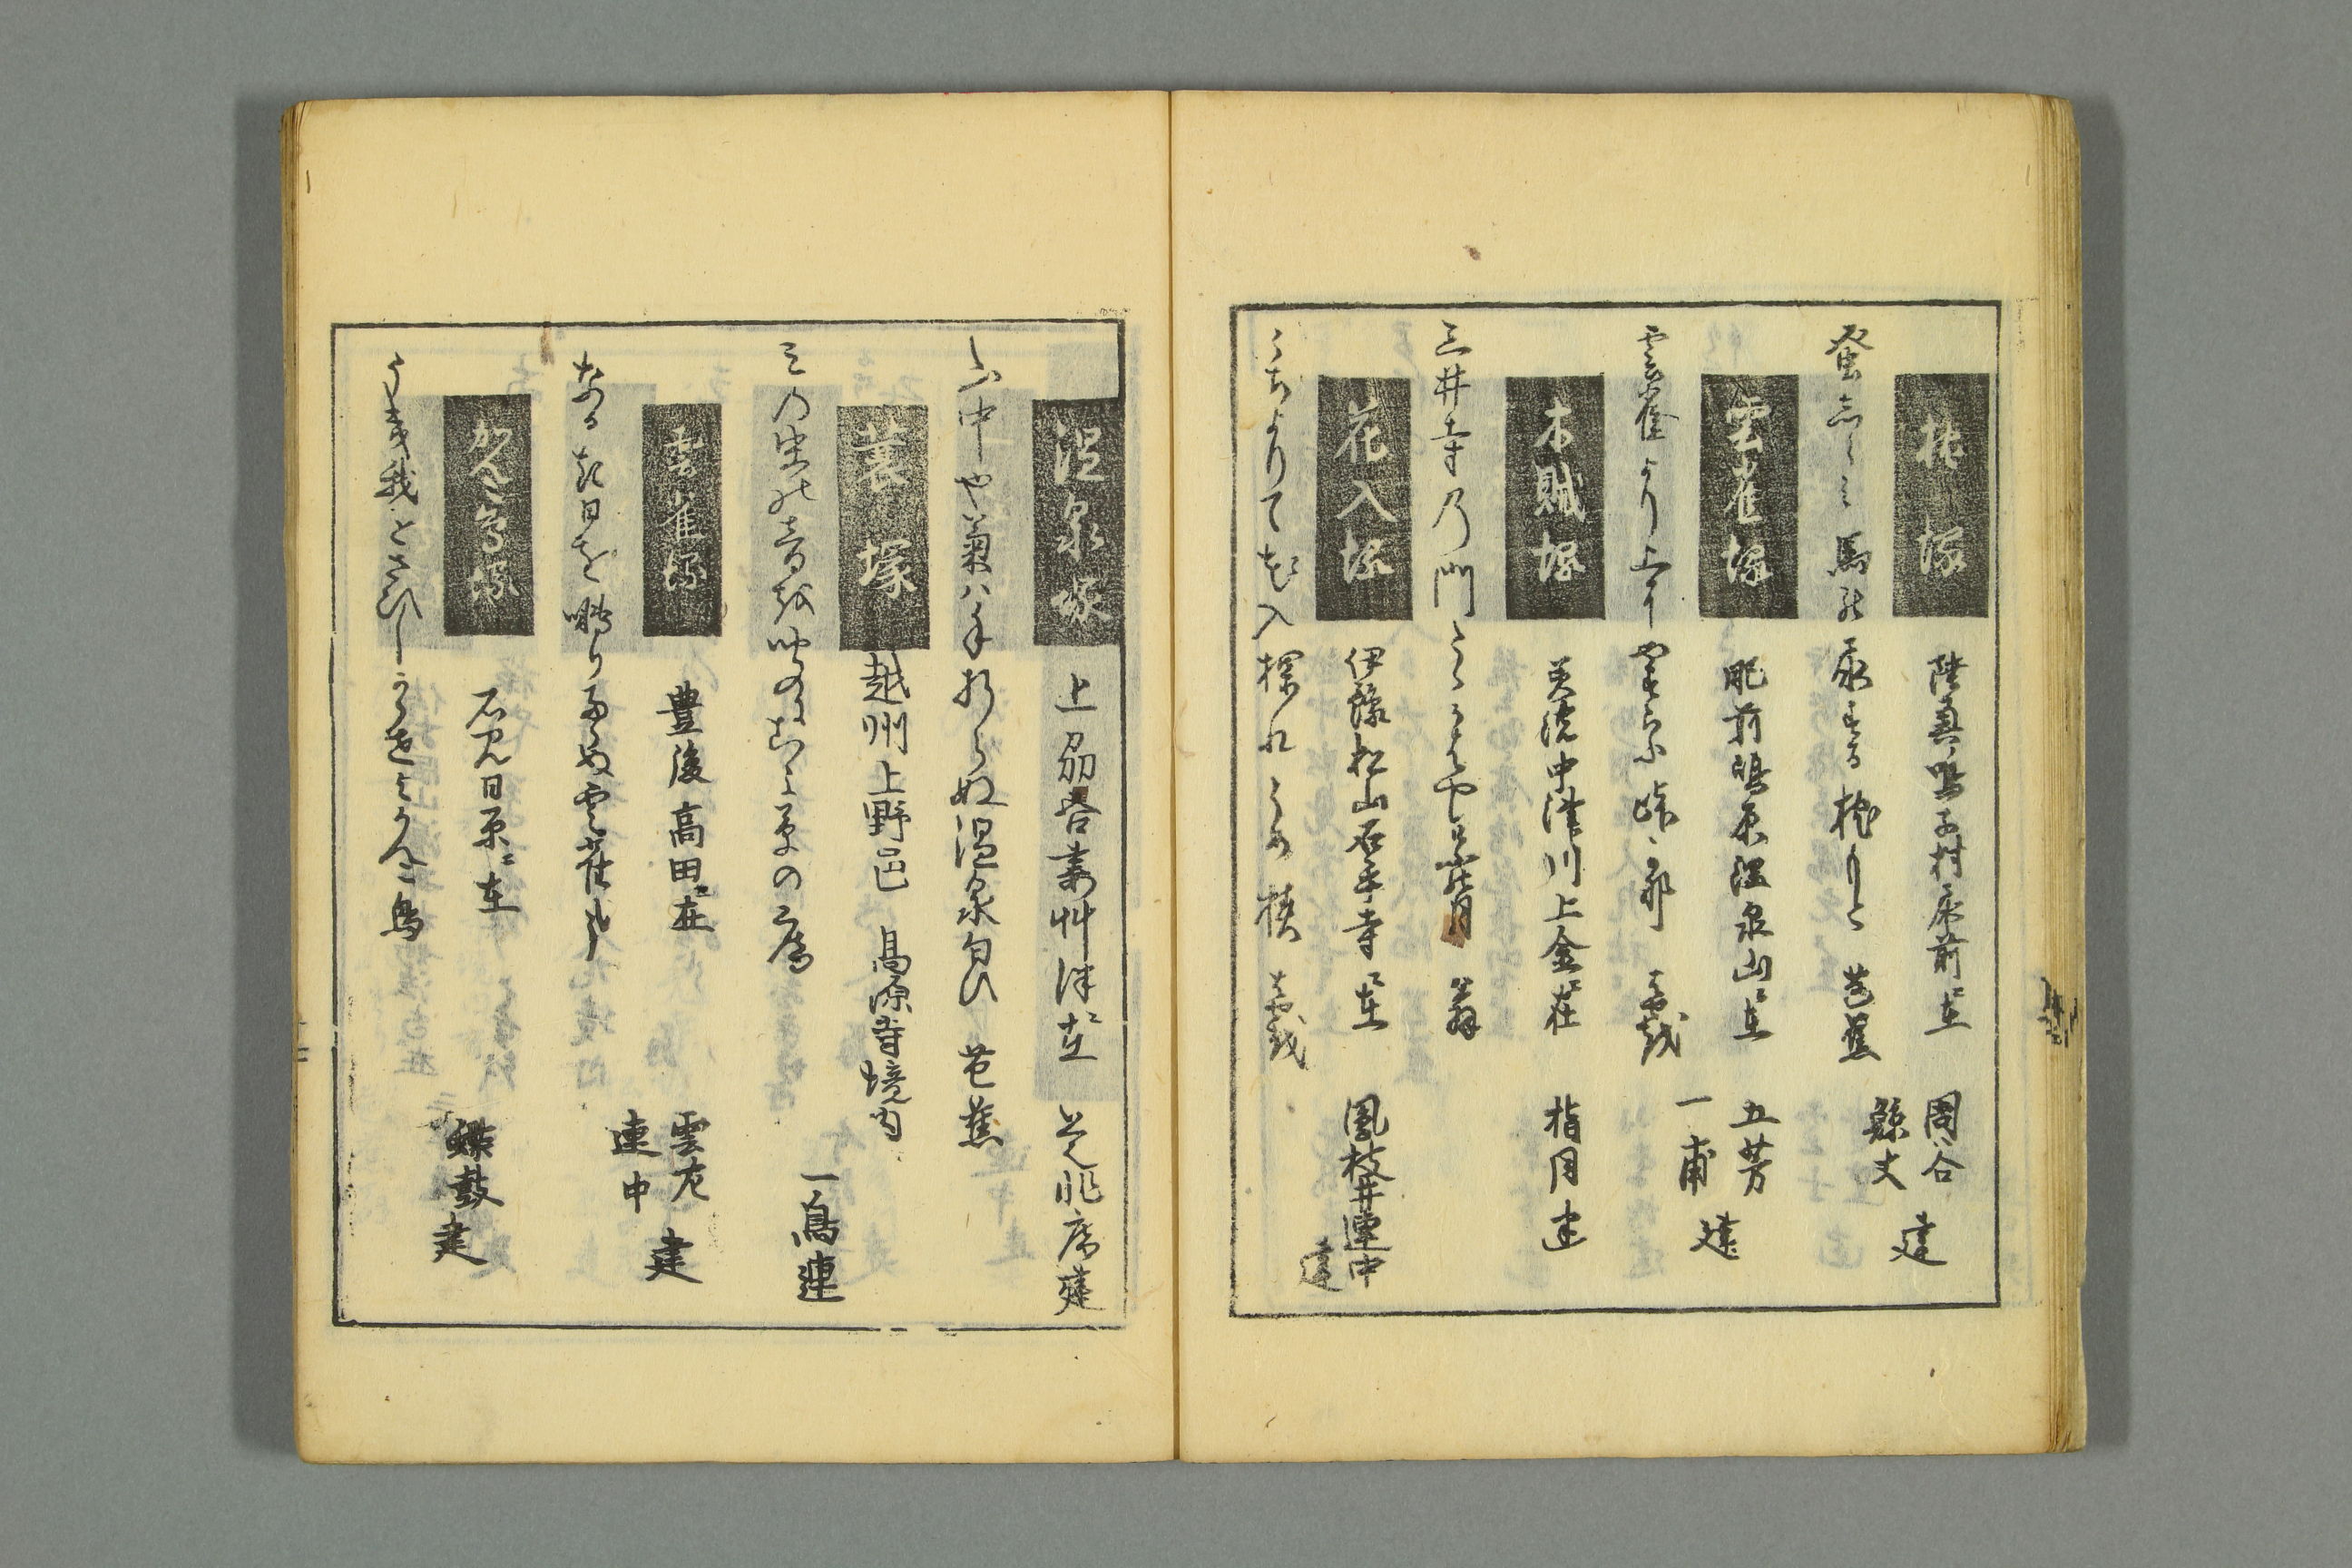 塚
陸奥鳴子村尿前ニ在
周谷
鯨丈
建
蚤しらみ馬の尿する枕もと 芭蕉
雲雀塚
肥前嶋原温泉山ニ在
五芳
一甫
建
雲雀より上にやすらふ峠哉 芭蕉
木賊塚
美濃中津川上金ニ在
指月建
三井寺の門たゝかはやけふの月 翁
花入塚
伊豫松山石手寺ニ在
風枝井連中
建
こちよりて花入探れ 芭蕉
温泉塚
上刕呑壽艸津ニ在
山中や菊ハ手折らぬ温泉匂ひ 芭蕉
蓑塚
越州上野邑 高源寺境内
一鳥連
みの虫の音を聞にこよ草の庵
雲雀塚
豊後高田ニ在
雲左
連中
建
なかき日を囀りたらぬ雲雀哉
かんこ鳥塚
石見日原ニ在
蝶鼓
建
うき我をさひしからせよかんこ鳥